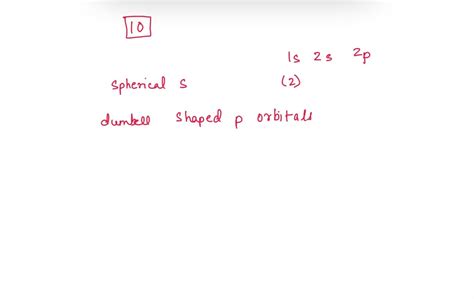 10
1s 2s 2p
spherical s (2)
dumbell shaped p orbitals